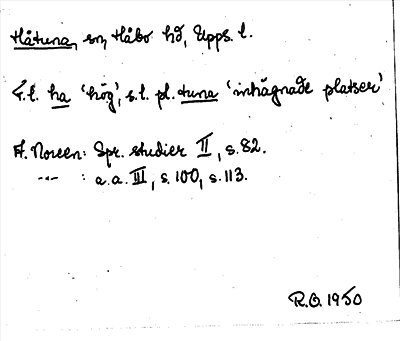 Håtuna, sn, Håbo hd, Upps. l.
F.l. ha 'hög', s.l. pl. tuna 'inhägnade platser'
A. Noreen: Spr. studier II, s. 82.
-"- : a.a. III, s. 100, s. 113.
R.O. 1950